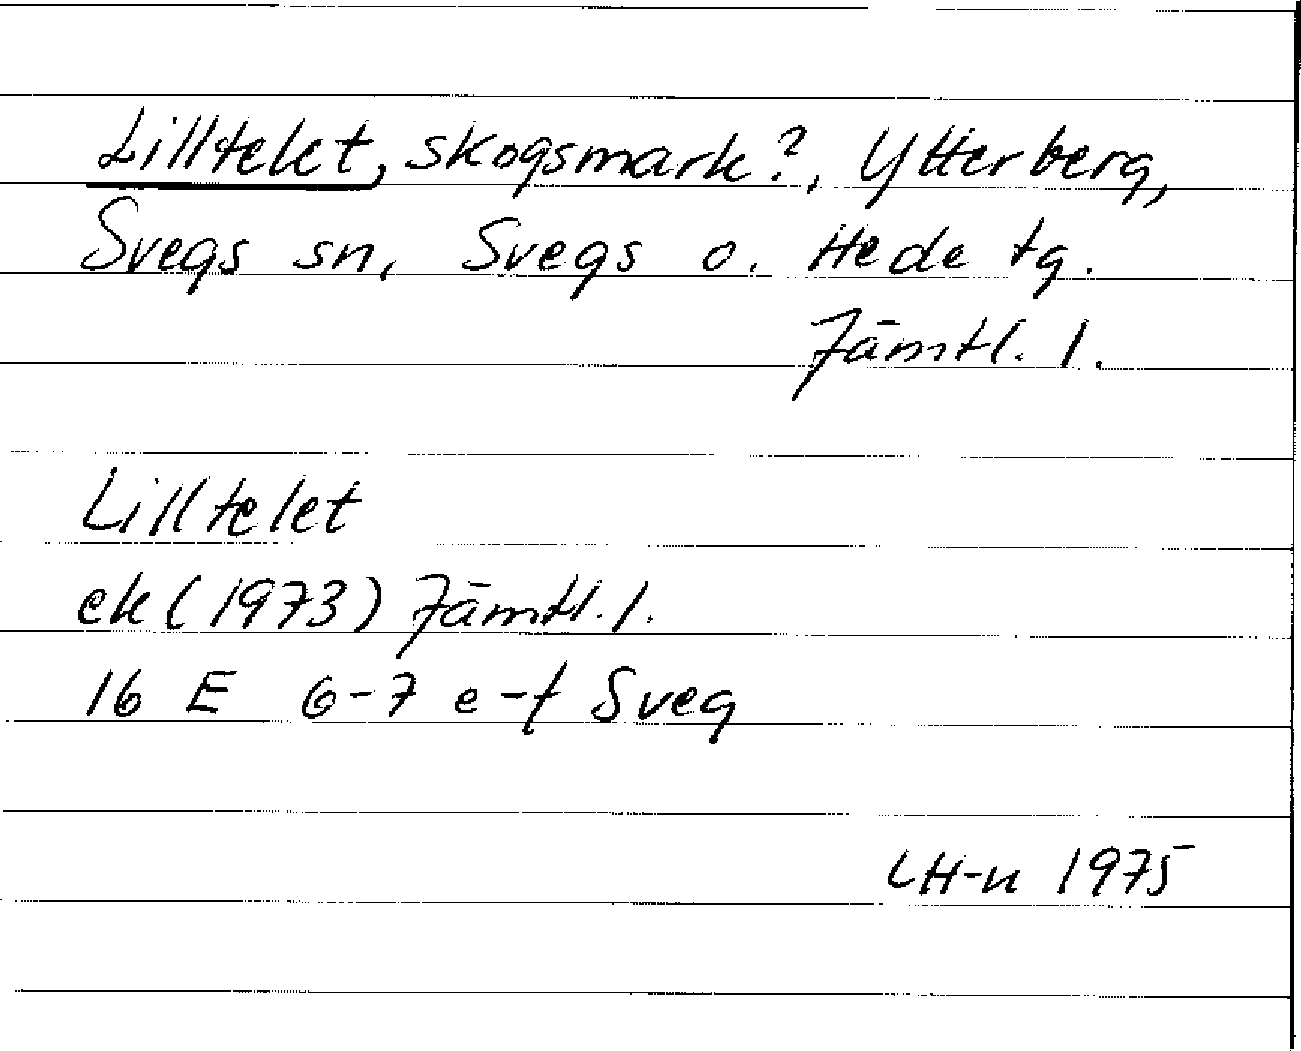 Lilltelet, skogsmark?, Ytterberg,
Svegs sn, Svegs o. Hede tg.
Jämtl. l.
Lilltelet
ek (1973) Jämtl. l.
16 E 6-7 e-f Sveg
LH-n 1975